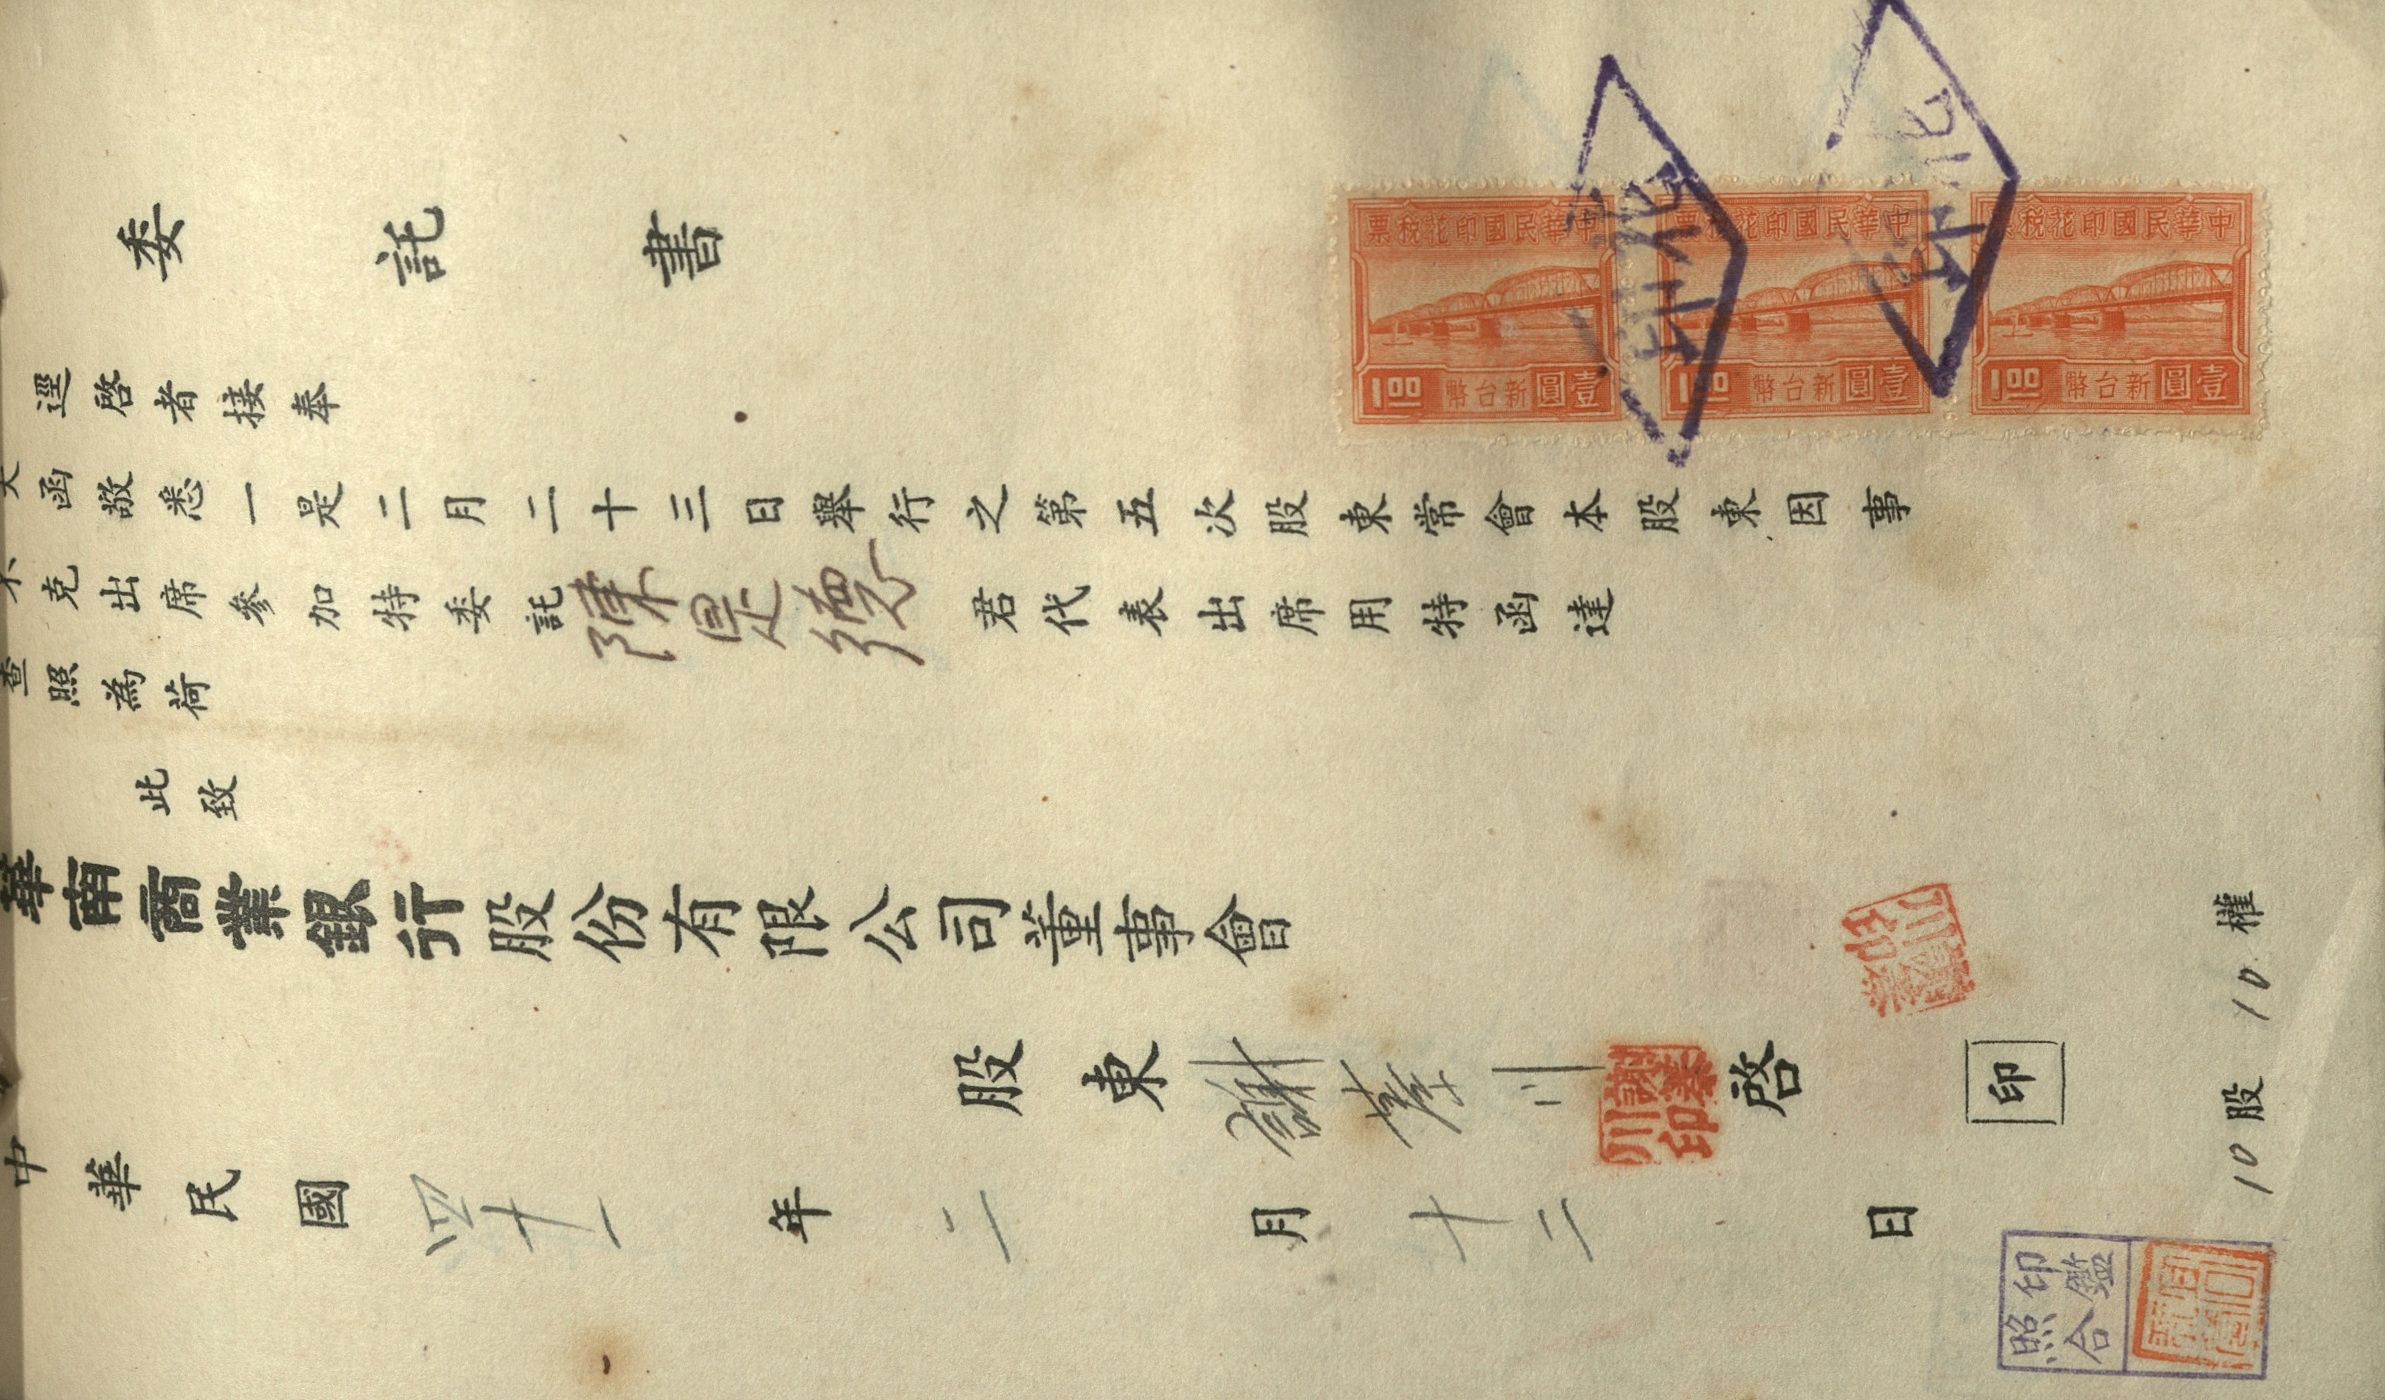 委託書
逕啓者接奉
大函敬悉一是二月二十三日舉行之第五次股東常會本股東因事
不克出席參加特委託陳君代表出席用特函達
查照為荷
此致
華南商業銀行股份有限公司董事會
股東謝川啓
印
中華民國四十一年二月十二日
10股 10權
印鑑照合
中華民國印花稅票
壹圓新台幣 1.00
中華民國印花稅票
壹圓新台幣 1.00
中華民國印花稅票
壹圓新台幣 1.00